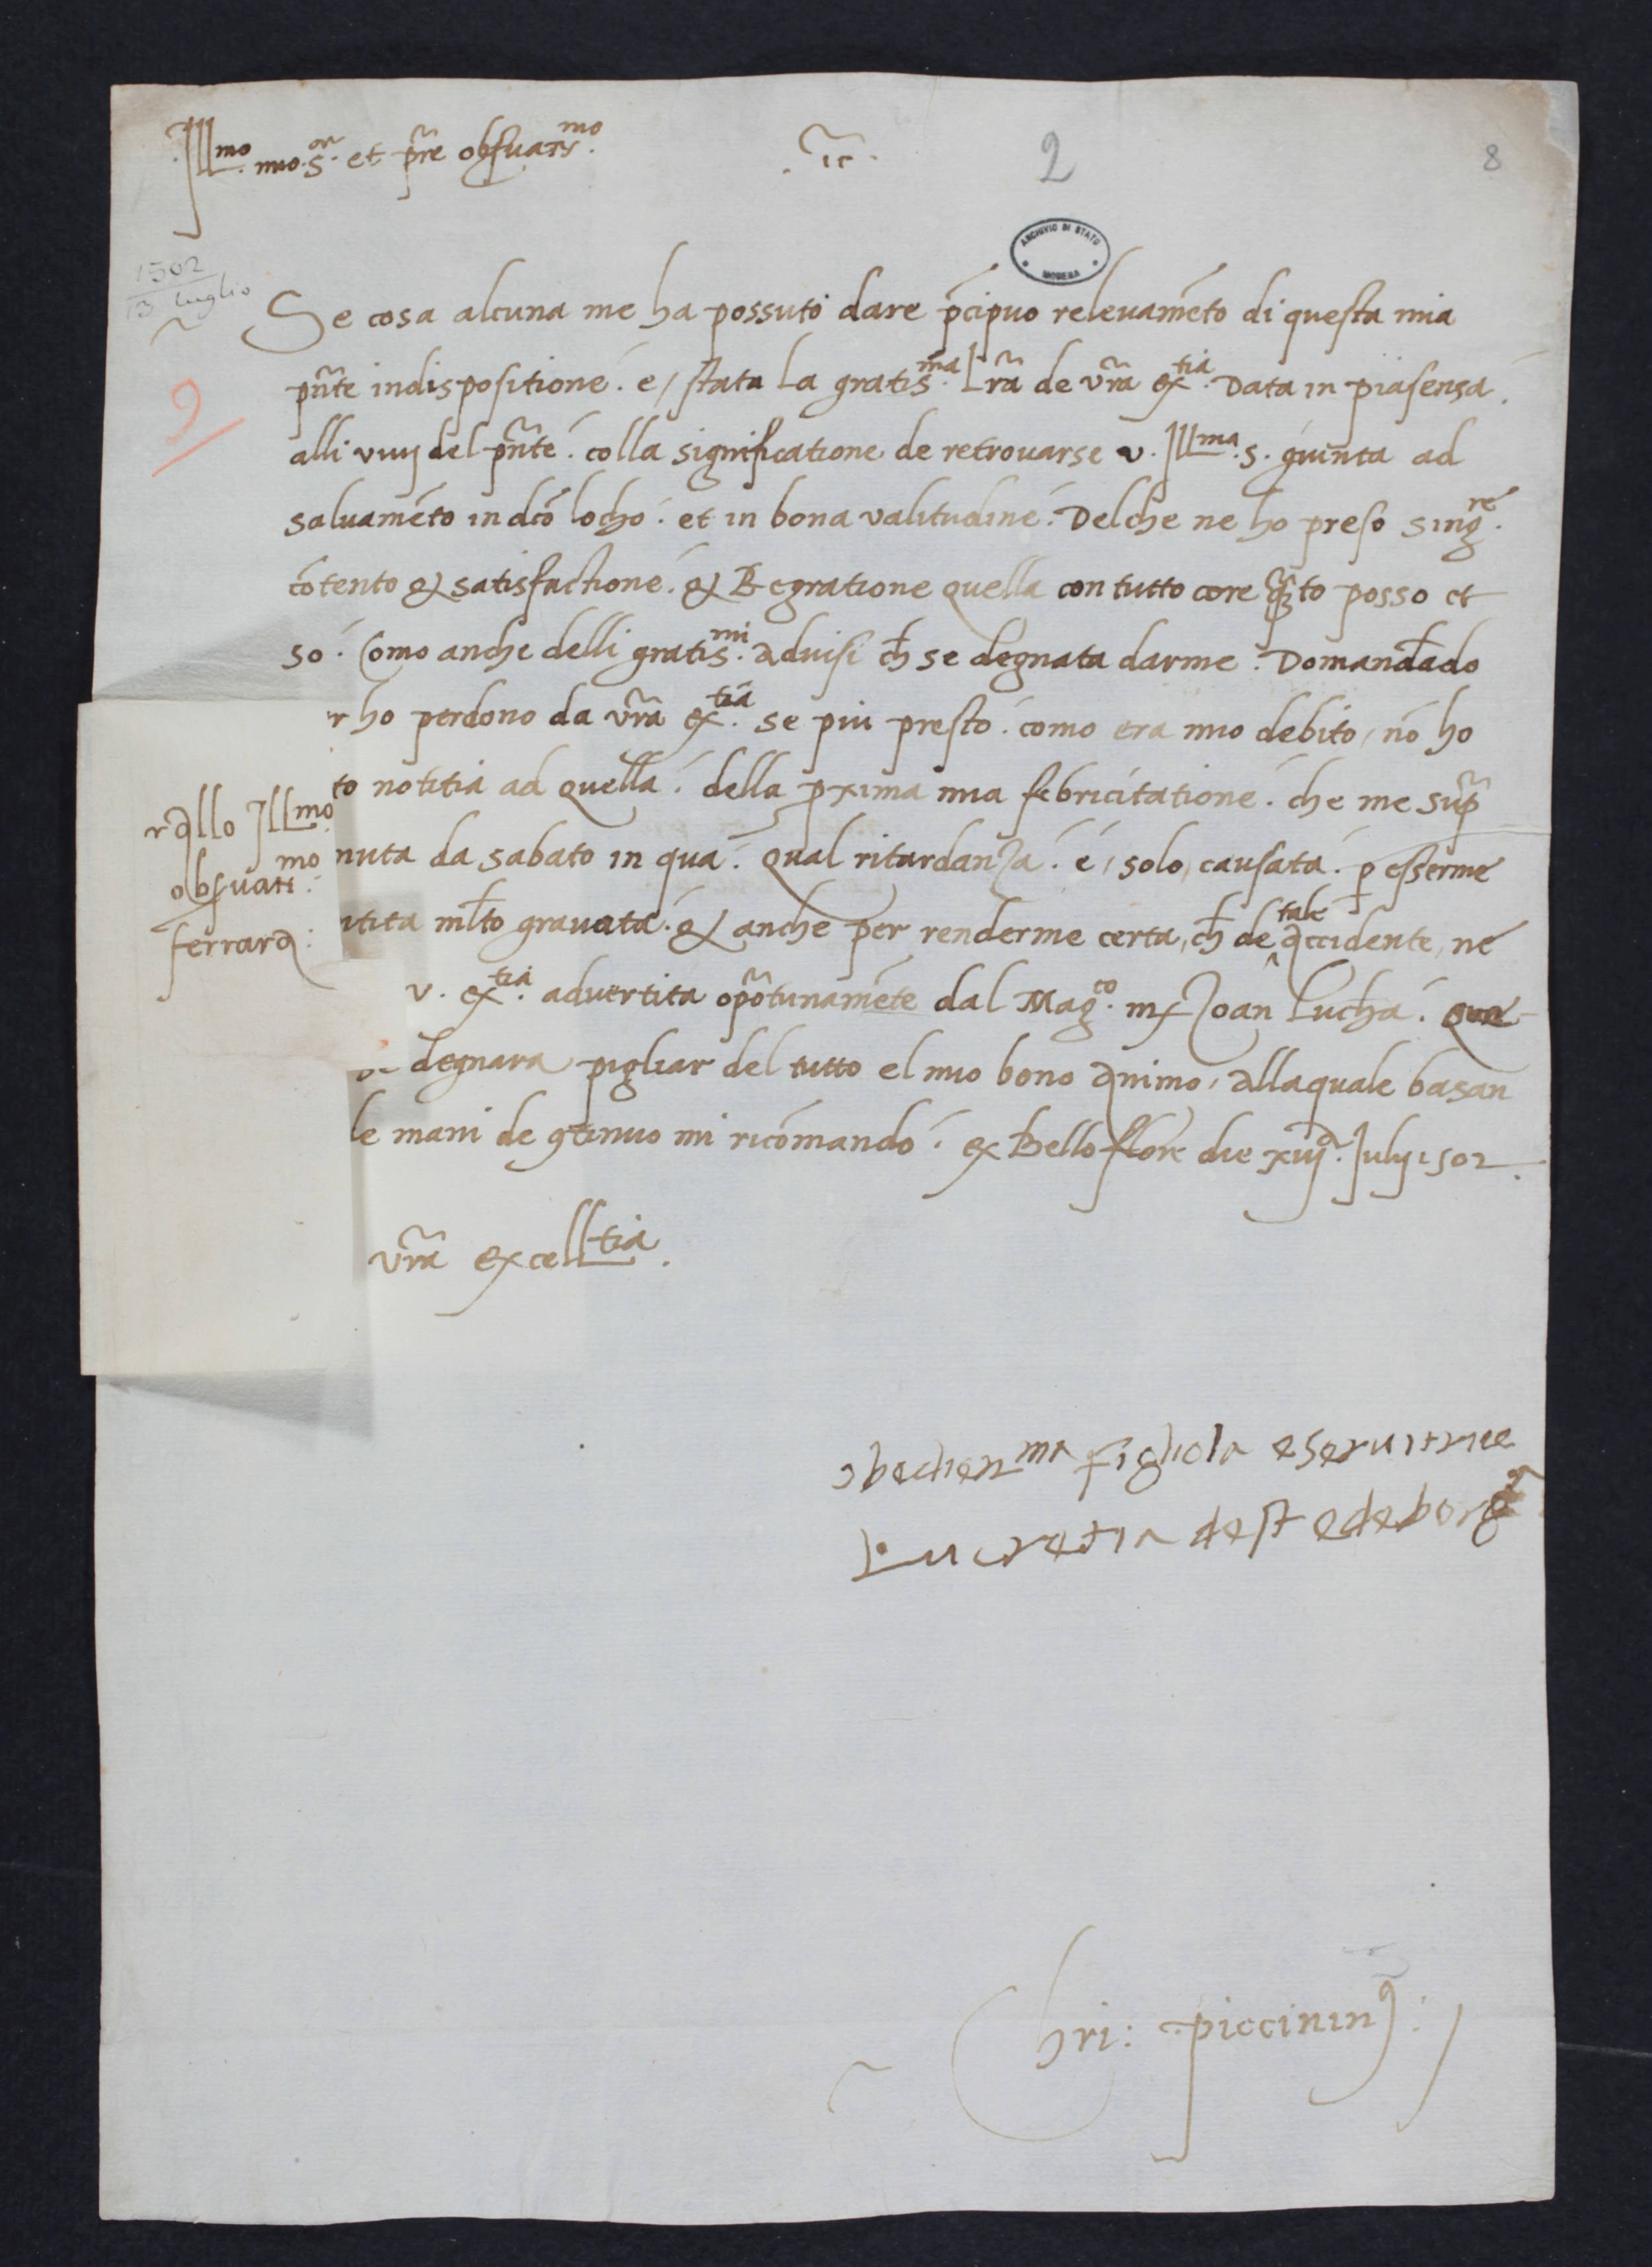 Jllmo. mio. Sor. et pre obseruatismo.
.ic.
2
8
ARCHIVIO DI STATO
MODENA
1502
13 luglio
9
Se cosa alcuna me ha possuto dare pcipuo releuameto di questa mia
pnte indispositione. e / stata la gratisma. Lra de vra extia. Data in piasensa.
alli viiij del pnte. colla significatione de retrouarse v. Jllma. s. giunta ad
saluameto in dco locho. et in bona valitudine. Delche ne ho preso singre.
cotento & satisfactione. & Regratione quella con tutto core qto posso et
so. Como anche delli gratismi. aduisi ch se degnata darme. Domandado
r ho perdono da vra extia. se piu presto. como era mio debito / no ho
to notitia ad quella. della pxima mia febricitatione. che me sup
nuta da sabato in qua. Qual ritardanza. e / solo / causata. p esserme
ntita mlto grauata. & anche per renderme certa, ch de tale accidente, ne
v. extia. aduertita oportunamete dal Magco. mr Joan Lucha. Que
se degnara pigliar del tutto el mio bono animo, allaquale basan
le mani de gtinuo mi ricomando. ex Belloflore die xiij. Julij 1502.
rallo Jllmo.
obseruatimo.
ferrara:
vra excelltia.
obedienma figliola e seruitrice
Lucretia de ste de borga
Chri: piccininus: